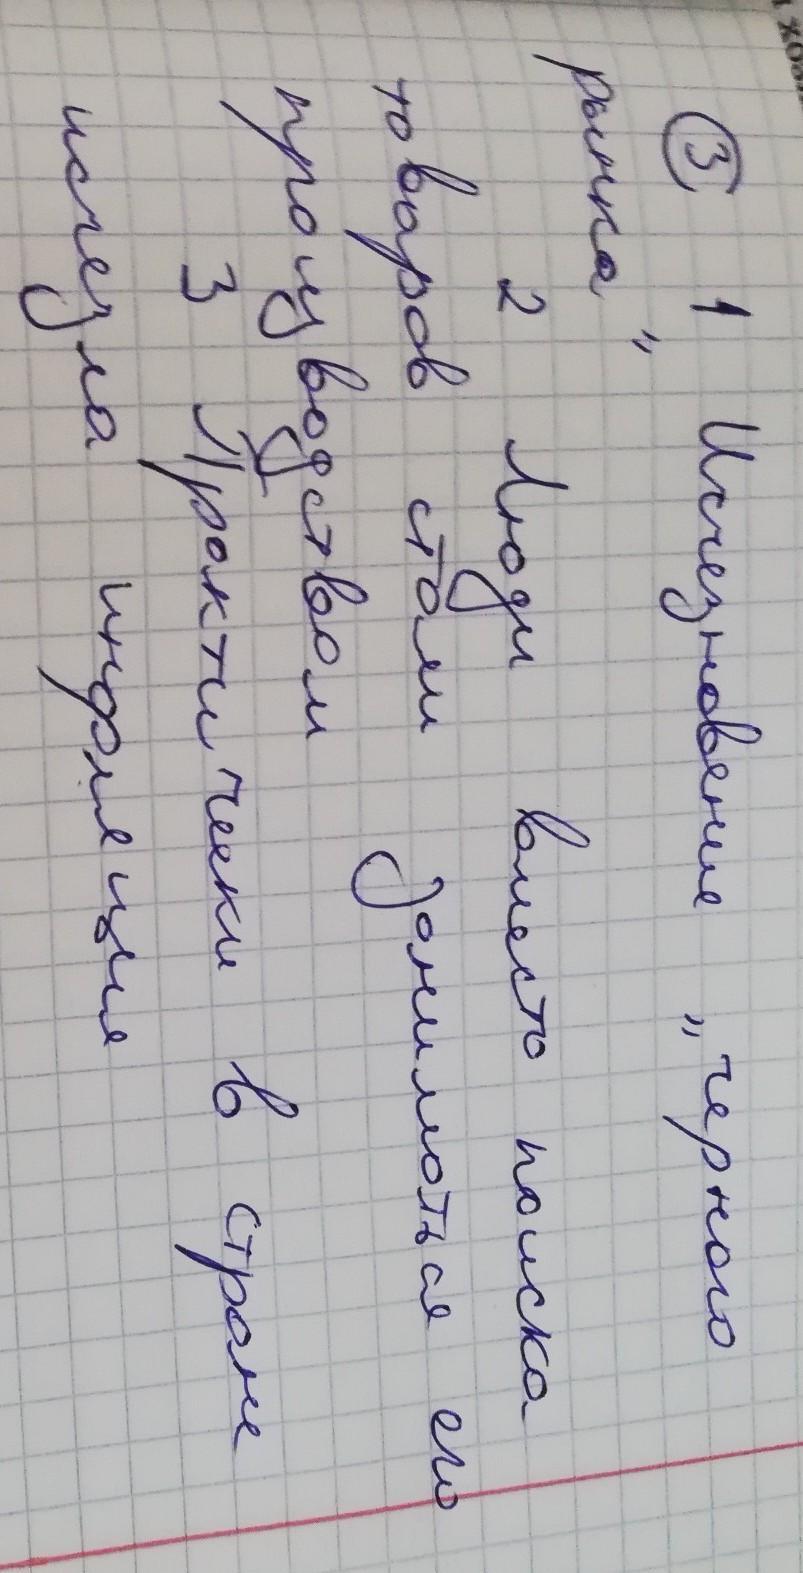 ③ 1 Исчезновение „черного
рынка"
2 Люди вместо поиска
товаров стали заниматься его
производством
3 Практически в стране
исчезла инфляция